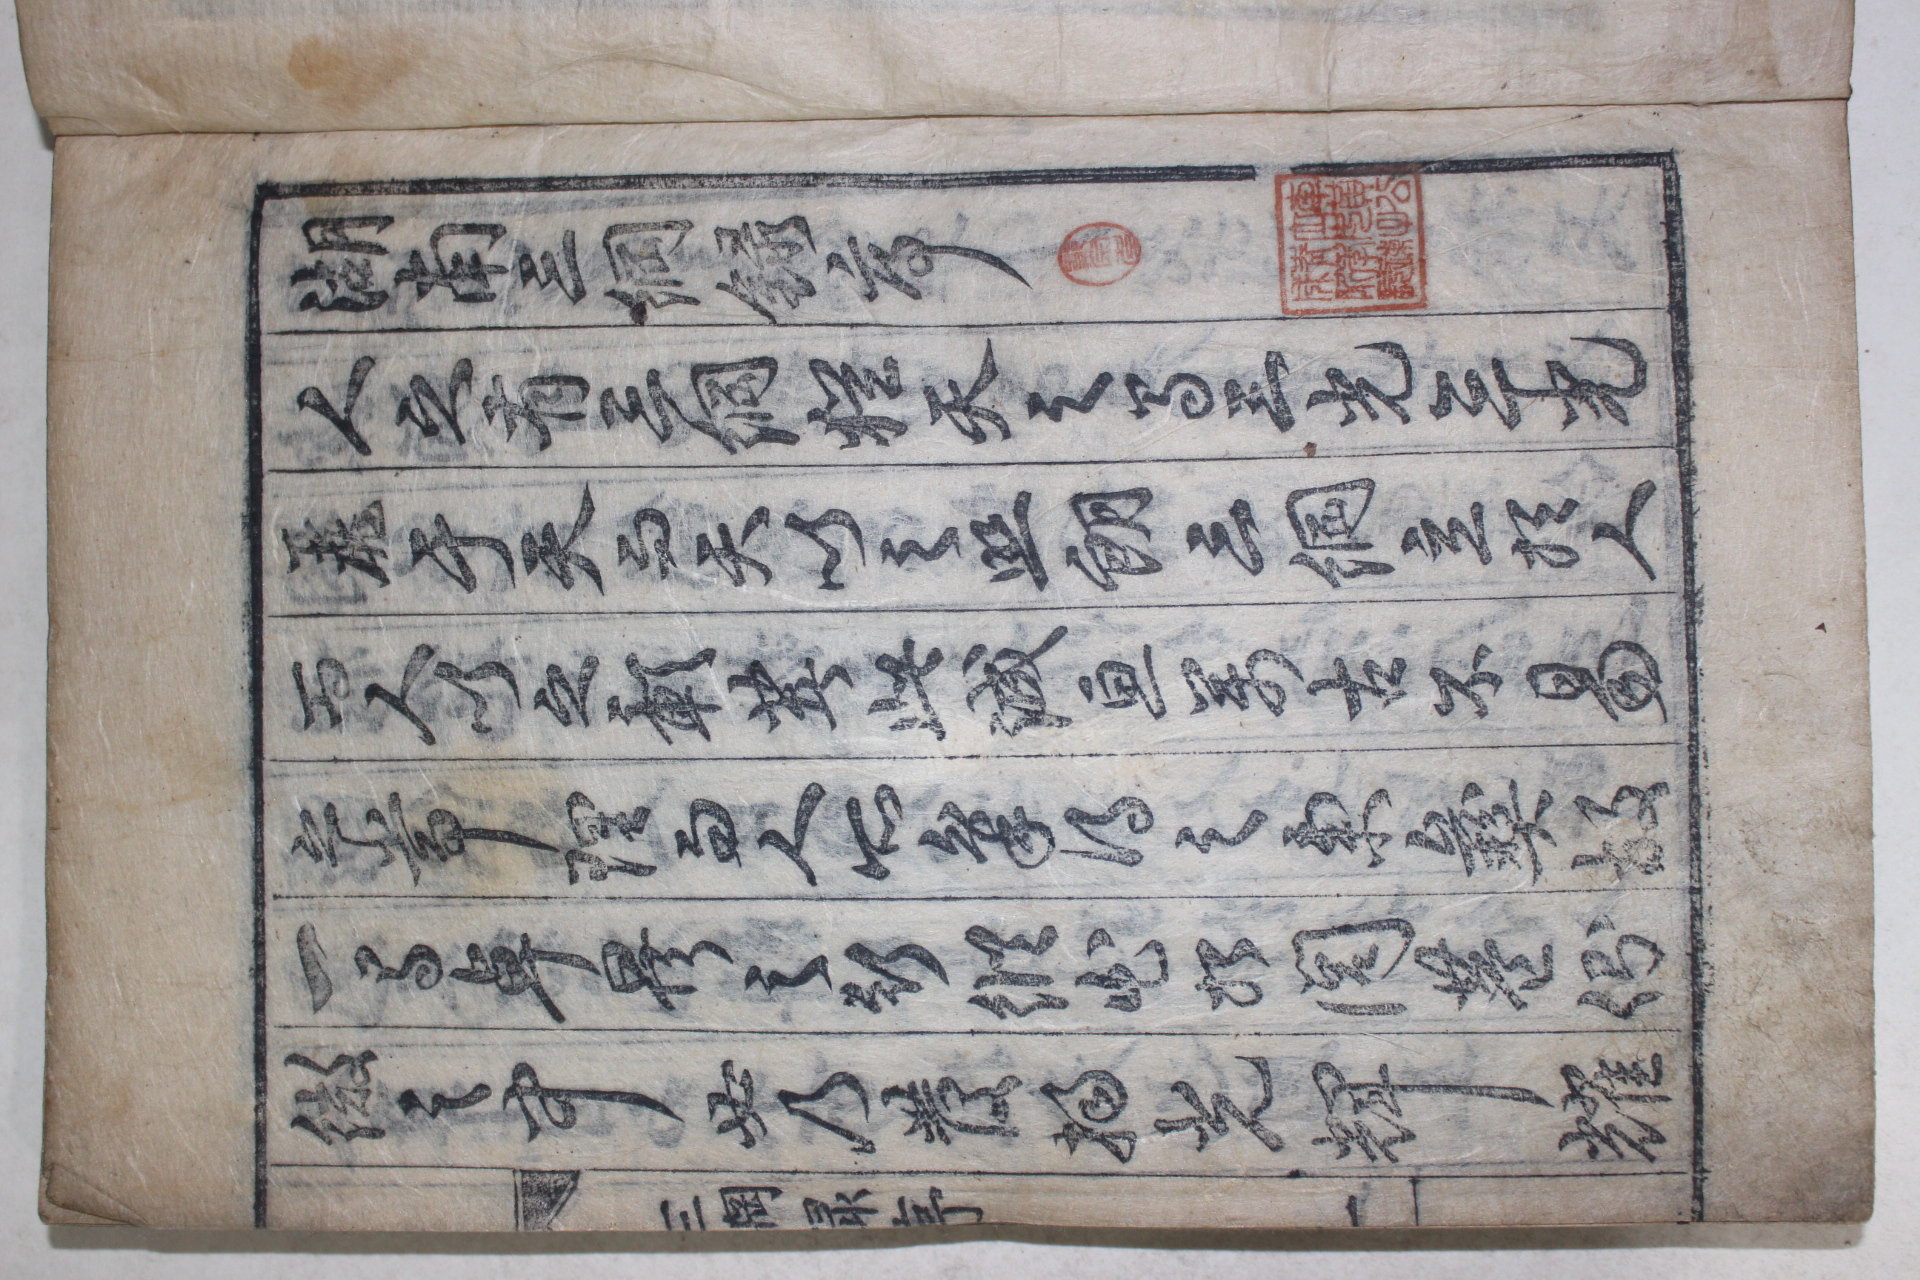 湖南三綱錄序
人之有三綱猶天之有三光三光
麗于天而天以之照朗三綱立於人
而人以之彰著此誠亘萬古不易
之常理而人所得之秉彝故
一有卓異之行縱出於閭巷側
微之中必乃發揚光輝耀
三綱錄序 一